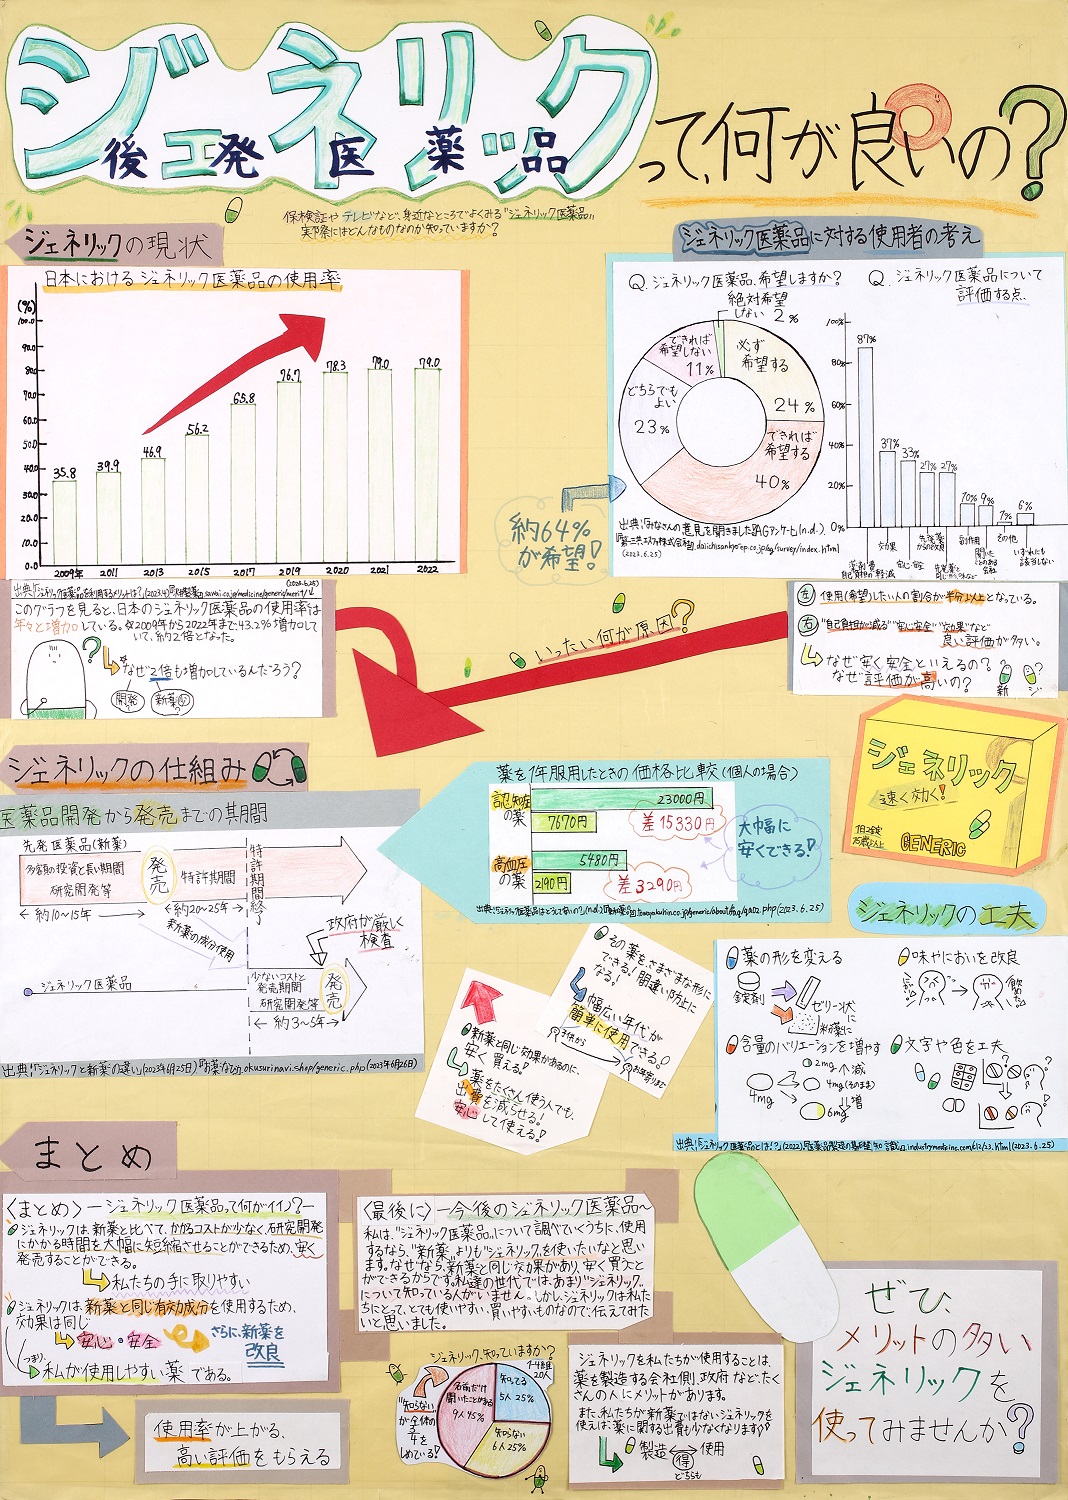 ジェネリック
後発医薬品
って、何が良いの?
保険証やテレビなど、身近なところでよくみる"ジェネリック医薬品"。
実際にはどんなものなのか知っていますか?
ジェネリックの現状
日本におけるジェネリック医薬品の使用率
(%)
100.0
90.0
80.0
70.0
60.0
50.0
40.0
30.0
20.0
10.0
0.0
35.8
39.9
46.9
56.2
65.8
76.7
78.3
79.0
79.0
2009年 2011 2013 2015 2017 2019 2020 2021 2022
このグラフを見ると、日本のジェネリック医薬品の使用率は
年々と増加している。☆2009年から2022年まで43.2%増加して
いて、約2倍となった。
?
なぜ2倍も増加しているんだろう?
開発?
新薬?
ジェネリック医薬品に対する使用者の考え
Q. ジェネリック医薬品、希望しますか?
絶対希望
しない 2%
必ず
希望する
24%
できれば
希望する
40%
どちらでも
よい
23%
できれば
希望しない
11%
約64%
が希望!
Q. ジェネリック医薬品について
評価する点
100%
80%
60%
40%
20%
0%
87%
37%
33%
27%
27%
10%
9%
1%
6%
効果
安心・安全
副作用
その他
いずれにも
該当しない
(2023.6.25)
左 使用(希望)したい人の割合が半分以上となっている。
右 "自己負担が減る""安心安全""効果"など
良い評価が多い。
なぜ安く安全といえるの?
なぜ評価が高いの?
新 ジ
いったい何が原因?
ジェネリックの仕組み
医薬品開発から発売までの期間
先発医薬品(新薬)
多額の投資と長い期間
研究開発等
発売
特許期間
特許期間終了
約10〜15年
約20〜25年
新薬の成分使用
政府が厳しく
検査
ジェネリック医薬品
少ないコストと
発売期間
研究開発等
発売
約3〜5年
出典:「ジェネリックと新薬の違い」(2023年6月25日)『お薬なび』okusurinavi.shop/generic.php(2023年6月26日)
薬を1年服用したときの価格比較(個人の場合)
認知症
の薬
23000円
7670円
差15330円
高血圧
の薬
5480円
2190円
差3290円
大幅に
安くできる!
ジェネリック
速く効く!
GENERIC
ジェネリックの工夫
薬の形を変える
錠剤
ゼリー状
に
粉薬に
味やにおいを改良
含量のバリエーションを増やす
4mg
2mg 減
4mg(そのまま)
6mg 増
文字や色を工夫
新薬と同じ効果があるのに、
安く買える!
薬をたくさん使う人でも、
出費を減らせる!
安心して使える!
その薬をさまざまな形に
できる!間違い防止に
なる!
幅広い年代が
簡単に使用できる!
子供から
お年寄りまで
まとめ
〈まとめ〉―ジェネリック医薬品って何がイイノ?―
ジェネリックは、新薬と比べて、かかるコストが少なく、研究開発
にかかる時間を大幅に短縮させることができるため、安く
発売することができる。
私たちの手に取りやすい
ジェネリックは、新薬と同じ有効成分を使用するため、
効果は同じ
安心・安全
さらに、新薬を
改良
つまり、
私が使用しやすい薬である。
使用率が上がる、
高い評価をもらえる
〈最後に〉―今後のジェネリック医薬品〜
私は、"ジェネリック医薬品"について調べていくうちに、使用
するなら、"新薬"よりも"ジェネリック"を使いたいなと思い
ます。なぜなら、新薬と同じ効果があり、安く買うこと
ができるからです。私達の世代では、あまり"ジェネリック"
について知っている人がいません。しかし、ジェネリックは私た
ちにとって、とても使いやすい、買いやすいものなので、伝えてみた
いと思いました。
ジェネリック、知っていますか?
1-4組
20人
知ってる
5人 25%
知らない
6人 25%
名前だけ
聞いたことがある
9人 45%
"知らない"
が全体の
3/4を
しめている!
ジェネリックを私たちが使用することは、
薬を製造する会社側、政府など、たく
さんの人にメリットがあります。
また、私たちが新薬ではないジェネリックを
使えば、薬に関する出費も少なくなります!
製造 得 使用
どちらも
ぜひ、
メリットの多い
ジェネリックを
使ってみませんか?